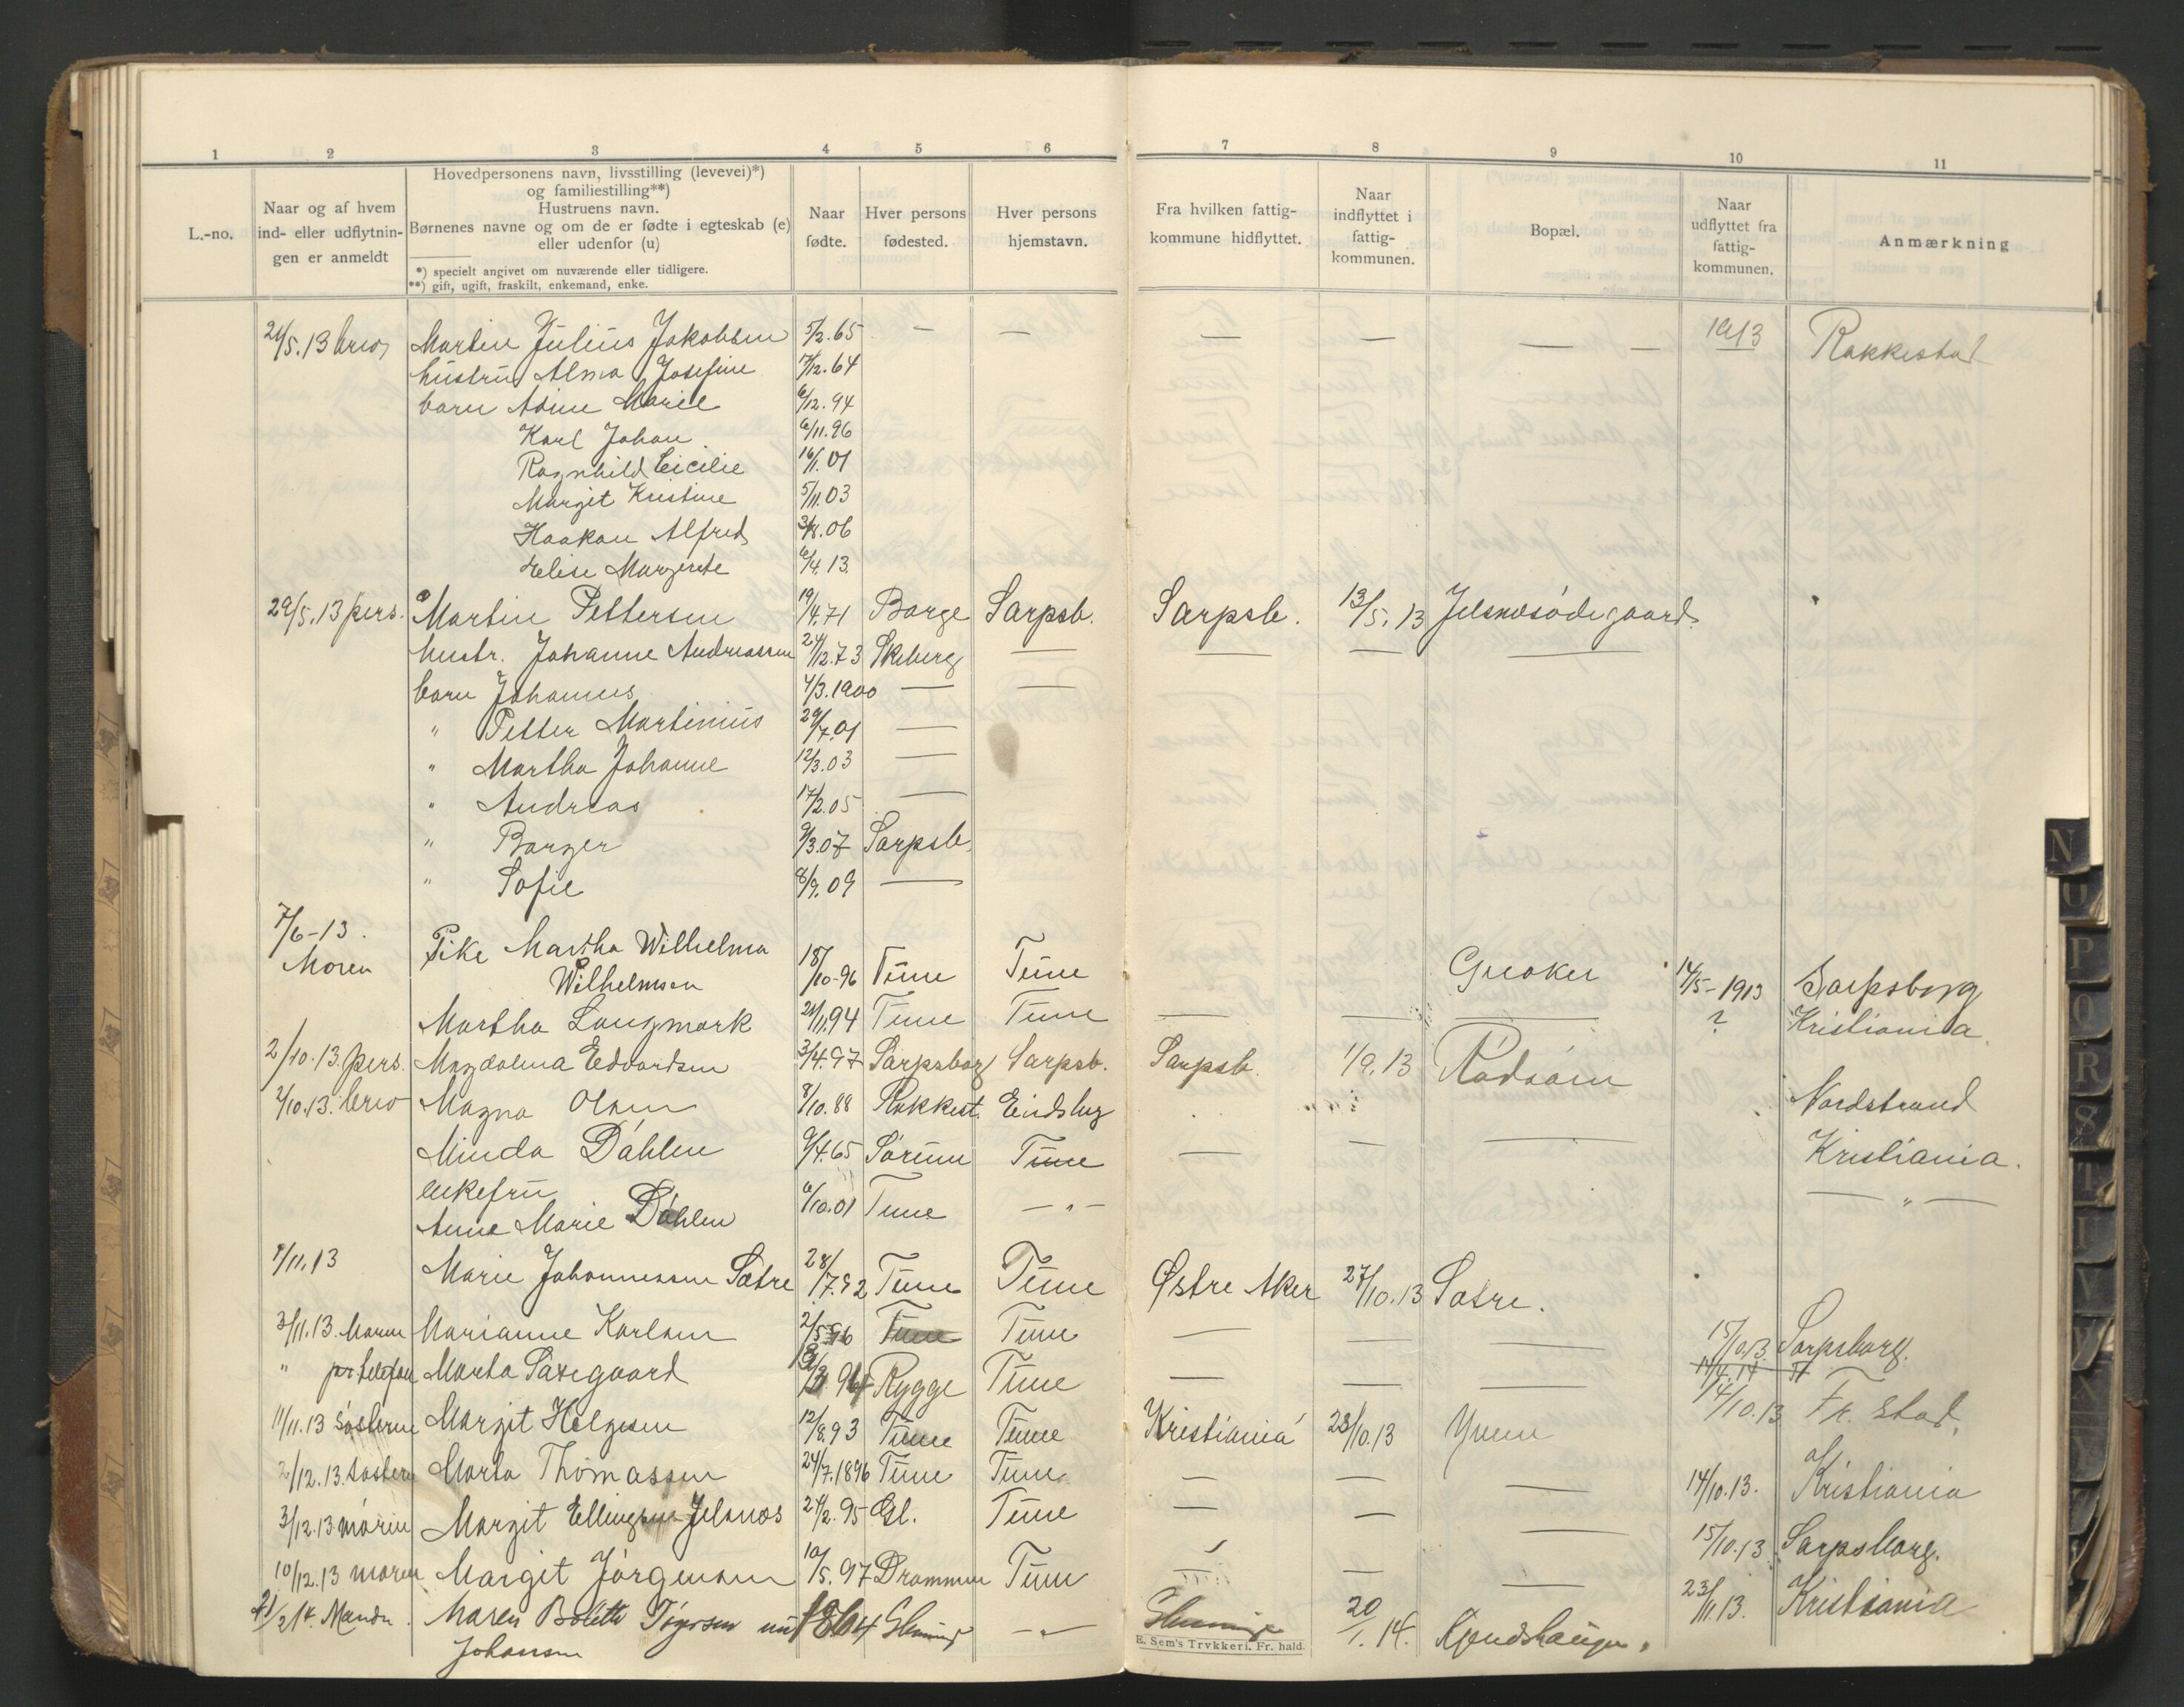 1 2 3 4 5 6 7 8 9 10 11
L.-no.
Naar og af hvem
ind- eller udflytnin-
gen er anmeldt
Hovedpersonens navn, livsstilling (levevei)*)
og familiestilling**)
Hustruens navn.
Børnenes navne og om de er fødte i egteskab (e)
eller udenfor (u)
*) specielt angivet om nuværende eller tidligere.
**) gift, ugift, fraskilt, enkemand, enke.
Naar
fødte.
Hver persons
fødested.
Hver persons
hjemstavn.
Fra hvilken fattig-
kommune hidflyttet.
Naar
indflyttet i
fattig-
kommunen.
Bopæl.
Naar
udflyttet fra
fattig-
kommunen.
Anmærkning
21/5.13 brev Martin Julius Jakobsen 5/2.65 — — — — — — 1913 Rakkestad
hustru Alma Josefine 17/12.64
barn Adine Marie 6/12.94
Karl Johan 6/11.96
Ragnhild Cicilie 16/1.01
Margit Kristine 5/11.03
Haakon Alfred 3/8.06
Elise Margrete 6/4.13.
29/5.13 pers. Martin Pettersen 19/4.71 Borge Sarpsb. Sarpsb. 13/5.13 Jelsnesødegaard.
hustr. Johanne Andreassen 24/12.73 Skeberg — — — —
barn Johannes 4/3.1900 — —
" Petter Martinius 29/7.01 —
" Martha Johanne 12/3.03 —
" Andreas 17/2.05 —
" Borger 9/3.07 Sarpsb.
" Sofie 8/9.09 —
7/6-13.
Moren Pike Martha Wilhelma
Wilhelmsen 18/10-96 Tune Tune Greaker 14/5-1913 Sarpsborg
Martha Langmark 21/11.94 Tune Tune — — — ? Kristiania.
2/10.13. pers. Magdalena Edvardsen 3/4.97 Sarpsborg Sarpsb. Sarpsb. 1/9.13 Rådsåen
2/10.13. brev Magna Olsen 8/10.88 Rakkest. Eidsbg Nordstrand
Minda Dåhlen 9/4.65 Sørum Tune — — — Kristiania.
enkefru
Anna Marie Dåhlen 6/10.01 Tune —"— —"—
1/11.13 Marie Johannessen Sætre 28/7.92 Tune Tune Østre Aker 27/10.13 Sætre.
3/11.13. Moren Marianne Karlsen 2/5.96 Tune Tune — — — 15/10.13. Sarpsborg.
14/4.14
" pr telefon Marta Saxegaard Rygge Tune — — — 14/10.13 Fr. stad.
11/11.13 Søsteren Margit Helgesen 12/8.93 Tune Tune Kristiania 28/10.13 Yven
2/12.13. søsteren Marta Thomassen 24/7.1896 Tune Tune — — — 14/10.13. Kristiania
3/12.13 moren Margit Ellingsen Jelsnes 24/2.95 Gl. Tune — — — 15/10.13 Sarpsborg.
10/12.13 moren Margit Jørgensen 10/5.97 Drammen Tune — — — 23/11.13. Kristiania
21/2 14. Manden. Maren Bolette 1864 Glemminge —"— Glemminge 20/1.14.
Johansen
E. Sem's Trykkeri, Fr. hald.
N
O
P
Q
R
S
T
U
V
W
X
Y